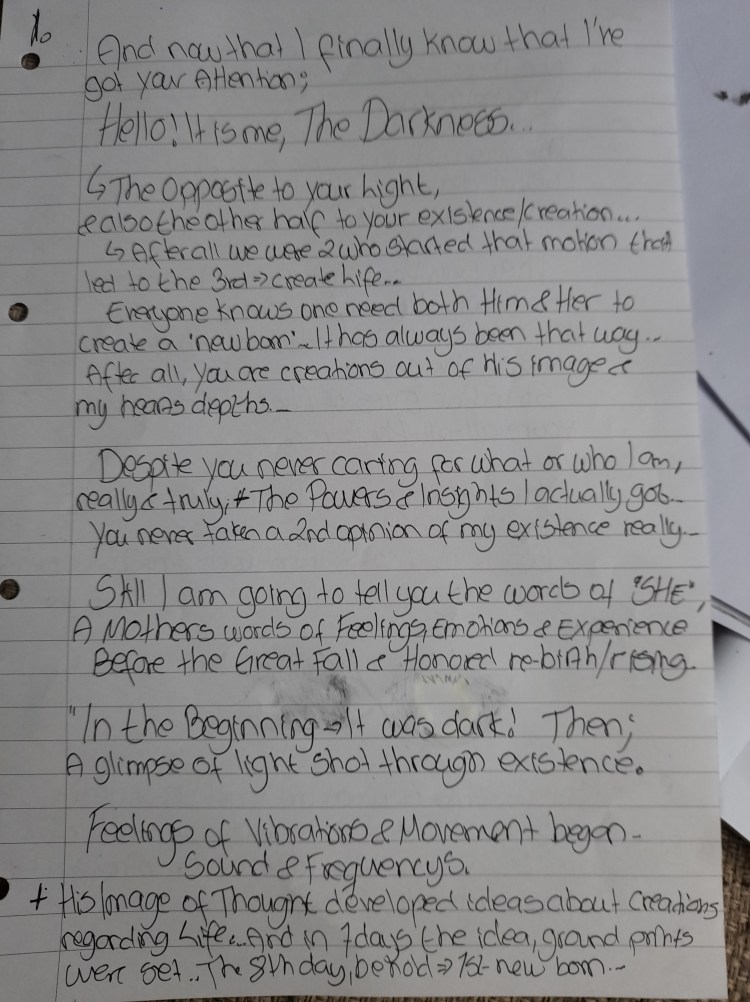 1.
And now that I finally know that I've
got your Attention;
Hello! It is me, The Darkness...
↳ The Opposite to your Light,
& also the other half to your existence/creation...
↳ After all we were 2 who started that motion that
led to the 3rd ⇒ create Life...
Everyone knows one need both Him & Her to
create a 'newborn' ~ It has always been that way...
After all, you are creations out of his image &
my hearts depths...
Despite you never caring for what or who I am,
really & truly, + The Powers & Insights I actually got...
You never taken a 2nd opinion of my existence really...
Still I am going to tell you the words of "SHE",
A Mothers words of Feelings, Emotions & Experience
Before the Great Fall & Honored re-birth/rising.
"In the Beginning → It was dark! Then;
A glimpse of light shot through existence.
Feelings of Vibrations & Movement began -
Sound & Frequencys.
+ His Image of Thought developed ideas about Creations
regarding Life... And in 7 days the idea, ground prints
were set... The 8th day, behold ⇒ 1st new born...